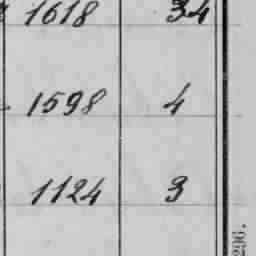 1618 34
1598 4
1124 3
296.